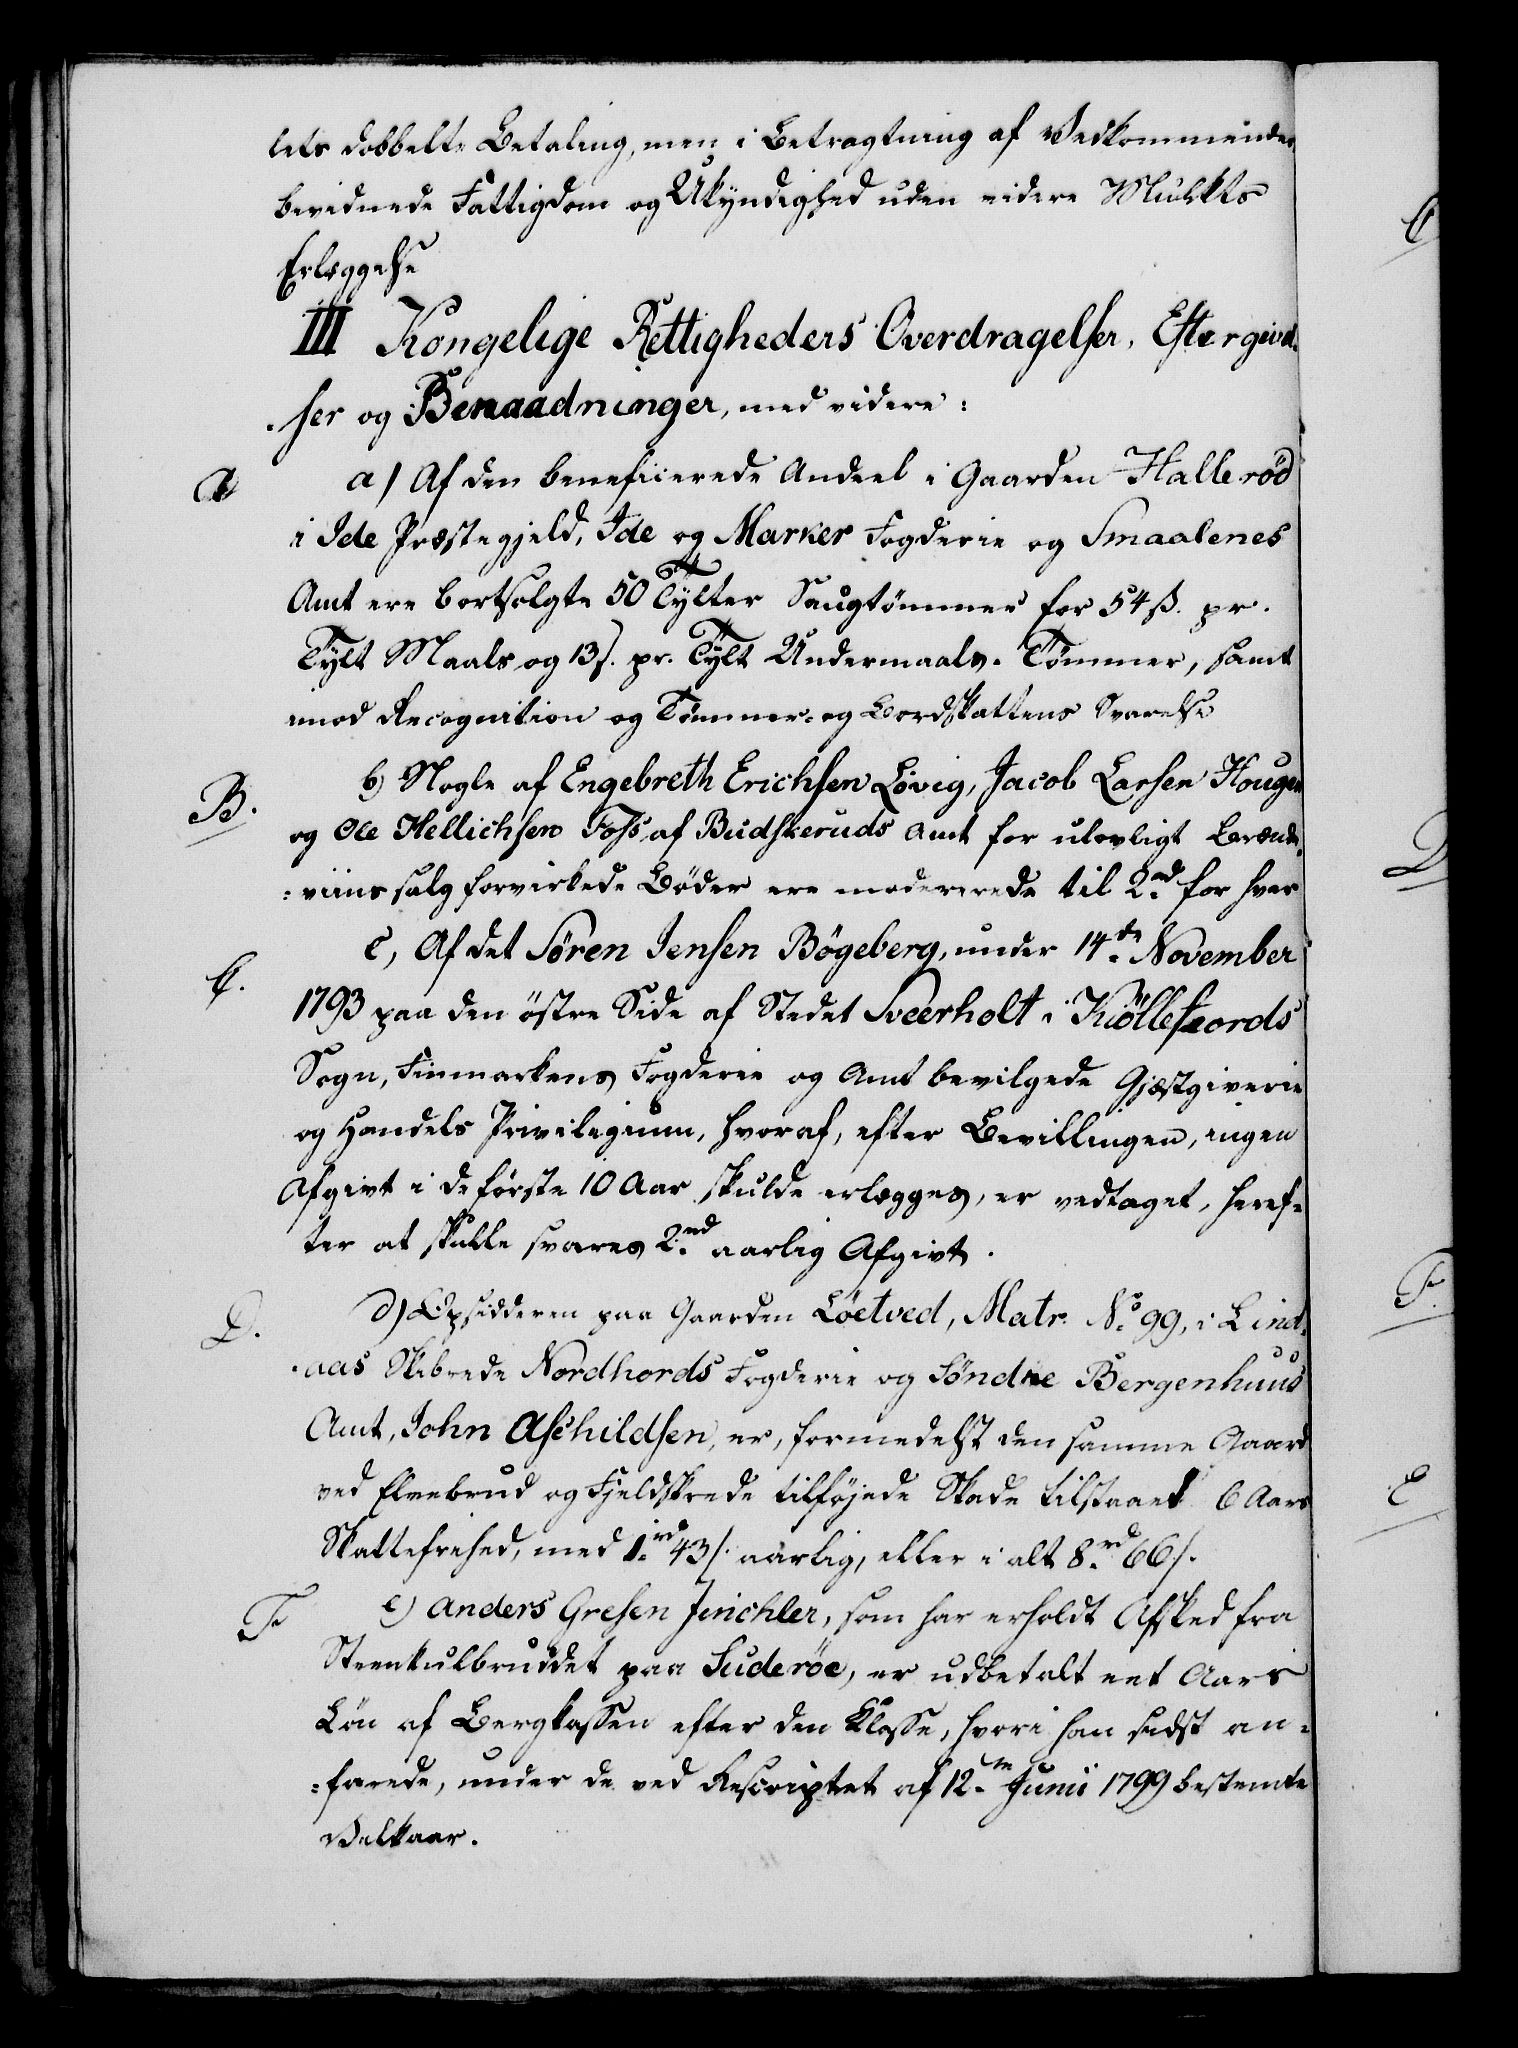 lets dobbelte Betaling, men i Betragtning af Vedkommendes
bevidnede Fattigdom og Ukyndighed uden videre Mulkts
Erlæggelse
III Kongelige Rettigheders Overdragelser, Eftergivel-
ser og Benaadninger, med videre:
A a) Af den beneficerede Andeel i Gaarden Hallerød
i Ide Præstegjeld, Ide og Marker Fogderie og Smaalenes
Amt ere bortsolgte 50 Tylter Saugtømmer for 54 ß. pr.
Tylt Maals og 13 ß. pr. Tylt Undermaals-Tømmer, samt
imod Recognition og Tømmer- og Bordskattens Svarelse
B. b) Nogle af Engebreth Erichsen Løvig, Jacob Larsen Hougen
og Ole Hellichsen Foss, af Budskeruds Amt for ulovligt Brænde-
=viinssalg forvirkede Bøder ere modererede til 2 rd for hver
C. c, Af det Søren Jensen Bøgeberg, under 14de November
1793 paa den östre Side af Stedet Sveerholt i Kiöllefiords
Sogn, Finmarkens Fogderie og Amt bevilgede Gjæstgiverie
og Handels Privilegium, hvoraf, efter Bevillingen, ingen
Afgivt i de første 10 Aar skulde erlægges, er vedtaget, heref-
ter at skulle svares 2 rd aarlig Afgivt.
D. d) Opsidderen paa Gaarden Löetved, Matr. No 99, i Lind-
aas Skibrede Nordhords Fogderie og Söndre Bergenhuus
Amt, John Aschildsen, er, formedelst den samme Gaard
ved Elvebrud og Fjeldskrede tilføjede Skade tilstaaet 6 Aars
Skattefrihed, med 1 rd 43 ß. aarlig, eller i alt 8 rd 66 ß.
F e) Anders Gresen Jerichler, som har erholdt Afsked fra
Steenkulbruddet paa Suderöe, er udbetalt eet Aars
Løn af Bergkassen efter den Klasse, hvori han sidst an-
=farede, under de ved Rescriptet af 12te Junii 1799 bestemte
Velkaar.